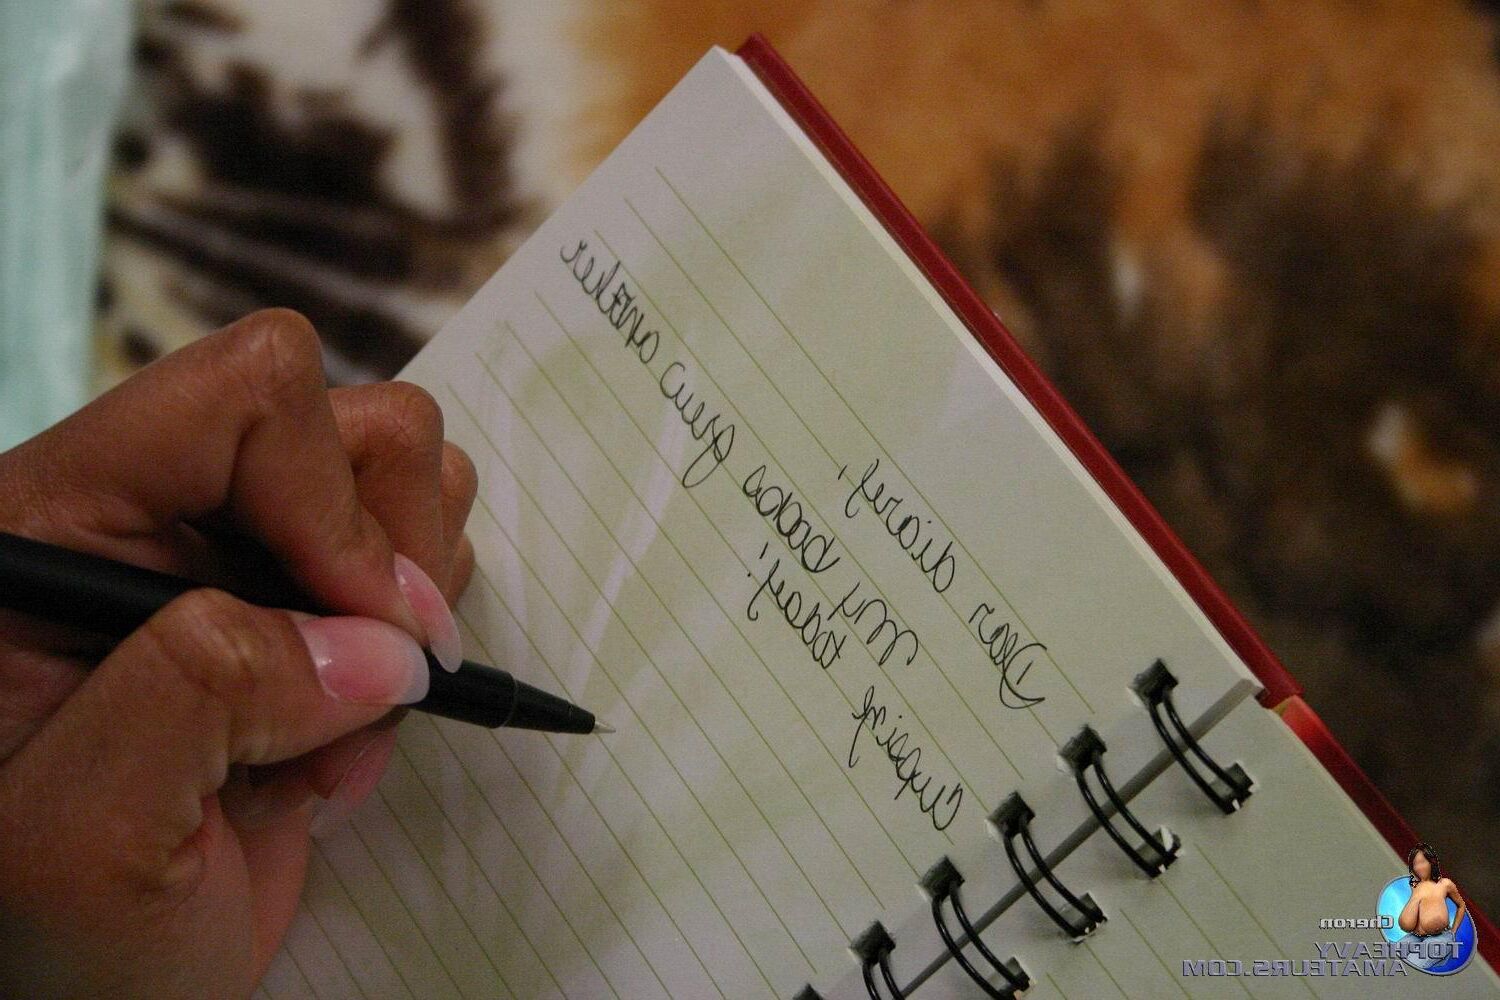 Dear diary,
My boobs grew another
cupsize today,
Cheron
TOPHEAVY
AMATEURS.COM